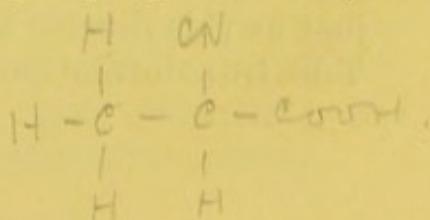 H CN
H - C - C - COOH.
H H